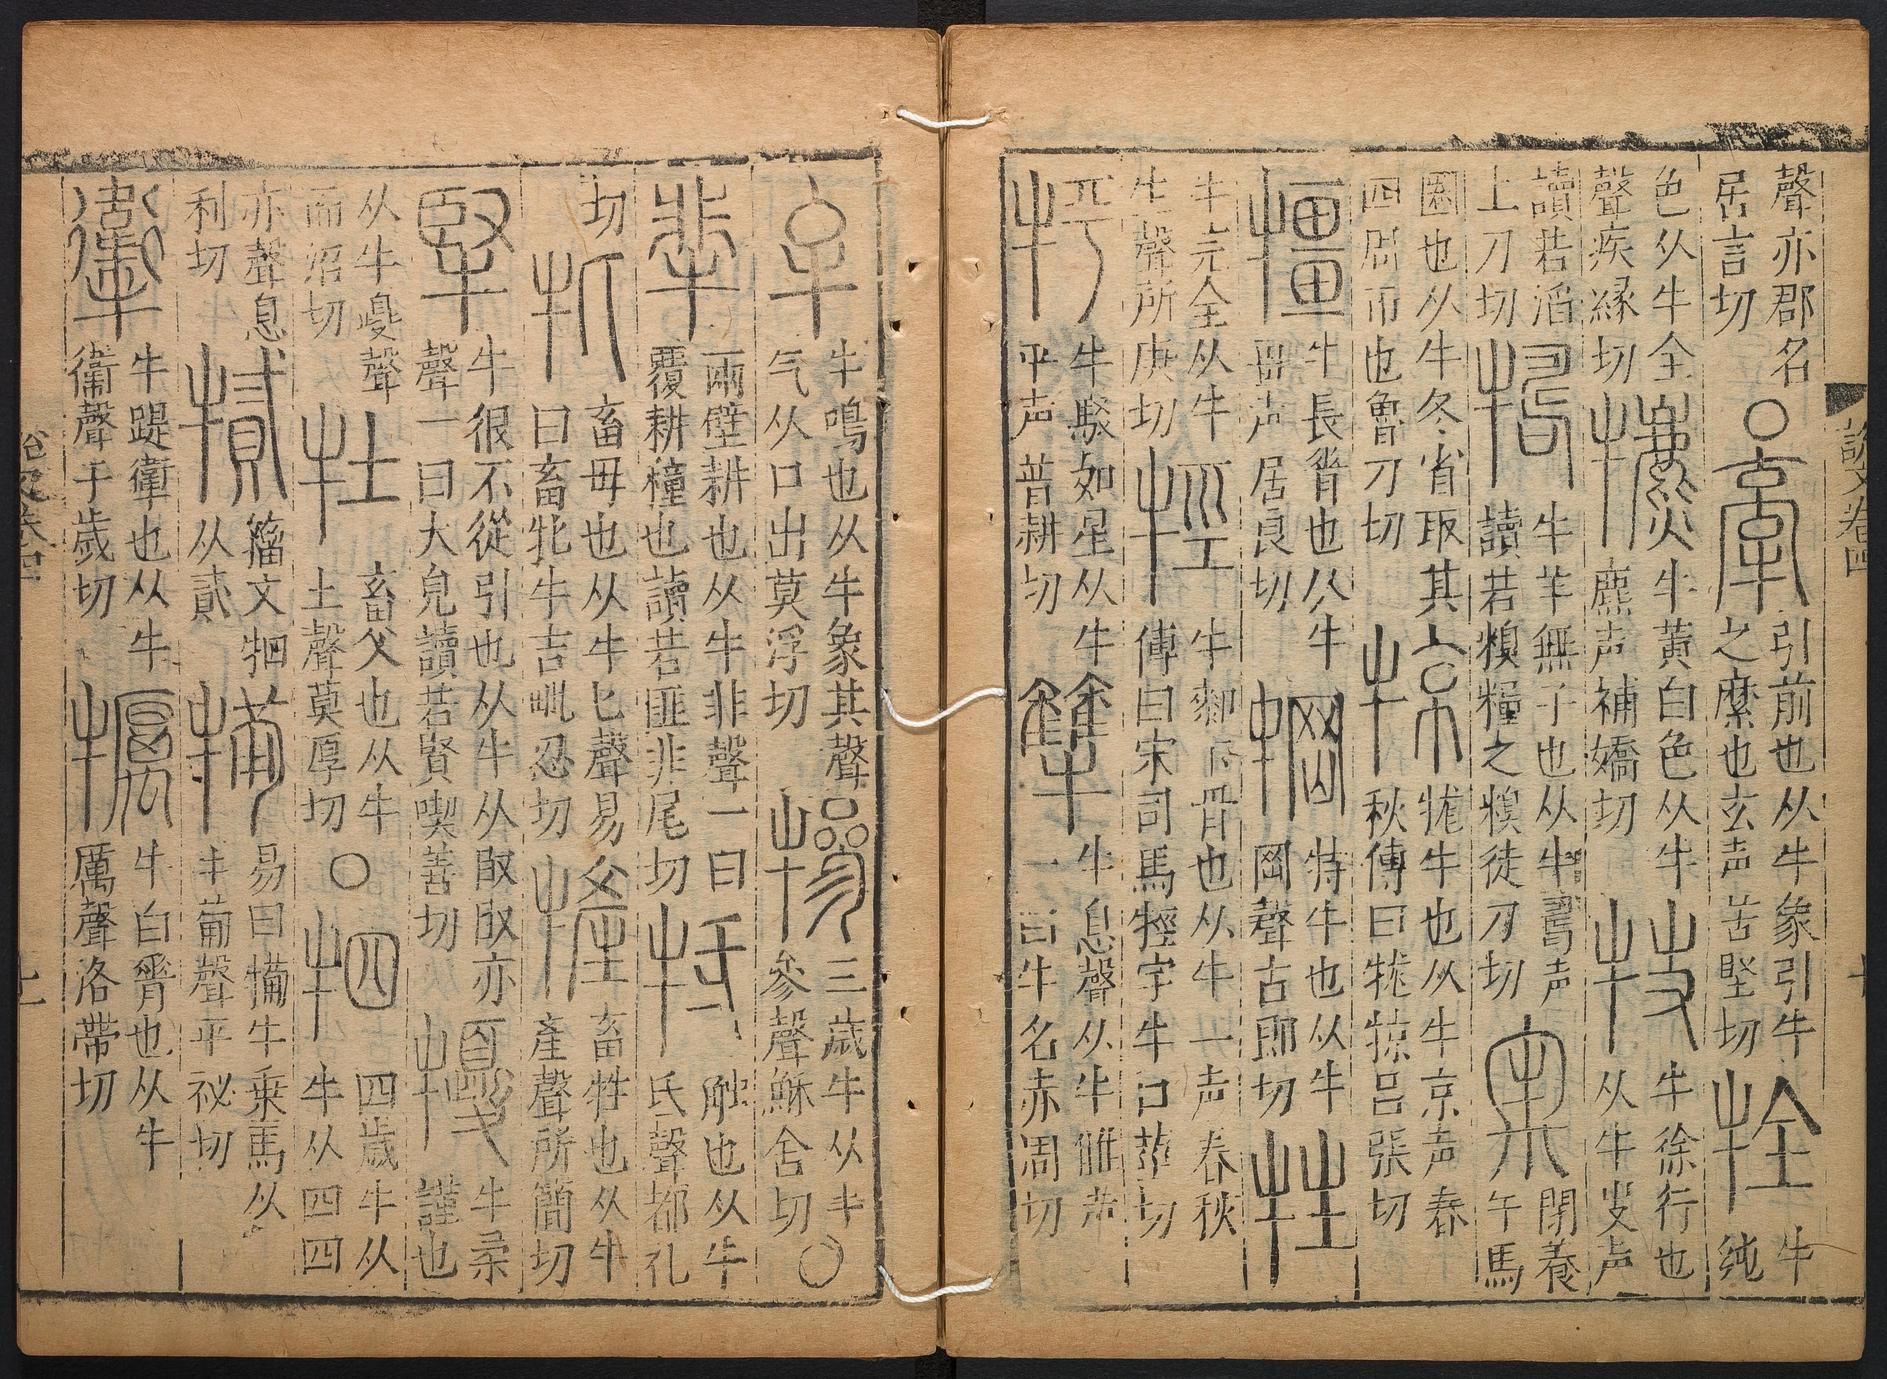 聲亦郡名
居言切
○
牽
引前也从牛象引牛
之縻也玄声苦堅切
牷
牛
純
色从牛全
聲疾縁切
犥
牛黄白色从牛
麃声補嬌切
牛徐行也
从牛𠬢声
讀若滔
土刀切
牛羊無子也从牛𠷎声
讀若糗糧之糗徒刀切
牢
閉養
牛馬
圈也从牛冬省取其
四周帀也魯刀切
㹁
牻牛也从牛京声春
秋傳曰牻㹁呂張切
牛長脊也从牛
畺声居良切
犅
特牛也从牛
岡聲古郎切
牲
牛完全从牛
生聲所庚切
牼
牛厀下骨也从牛一声春秋
傳曰宋司馬牼字牛口莖切
牛駁如星从牛
平声普耕切
犨
牛息聲从牛雔声
一曰牛名赤周切
說文卷四
牟
牛鳴也从牛象其聲
气从口出莫浮切
犙
三歲牛从牛
參聲穌含切
○
兩壁耕也从牛非聲一曰
覆耕種也讀若匪非尾切
牴
觸也从牛
氐聲都礼
切
牝
畜母也从牛匕聲易
曰畜牝牛吉毗忍切
㹌
畜牲也从牛
產聲所簡切
㹂
牛很不從引也从牛从臤臤亦
聲一曰大皃讀若賢喫善切
牛柔
謹也
从牛夒聲
而沼切
牡
畜父也从牛
土聲莫厚切
○
牭
四歲牛从
牛从四四
亦聲息
利切
籀文牭
从貳
犕
易曰犕牛乗馬从
牛𤰇聲平祕切
牛踶衛也从牛
衞聲于歲切
犡
牛白脊也从牛
厲聲洛帶切
說文卷四